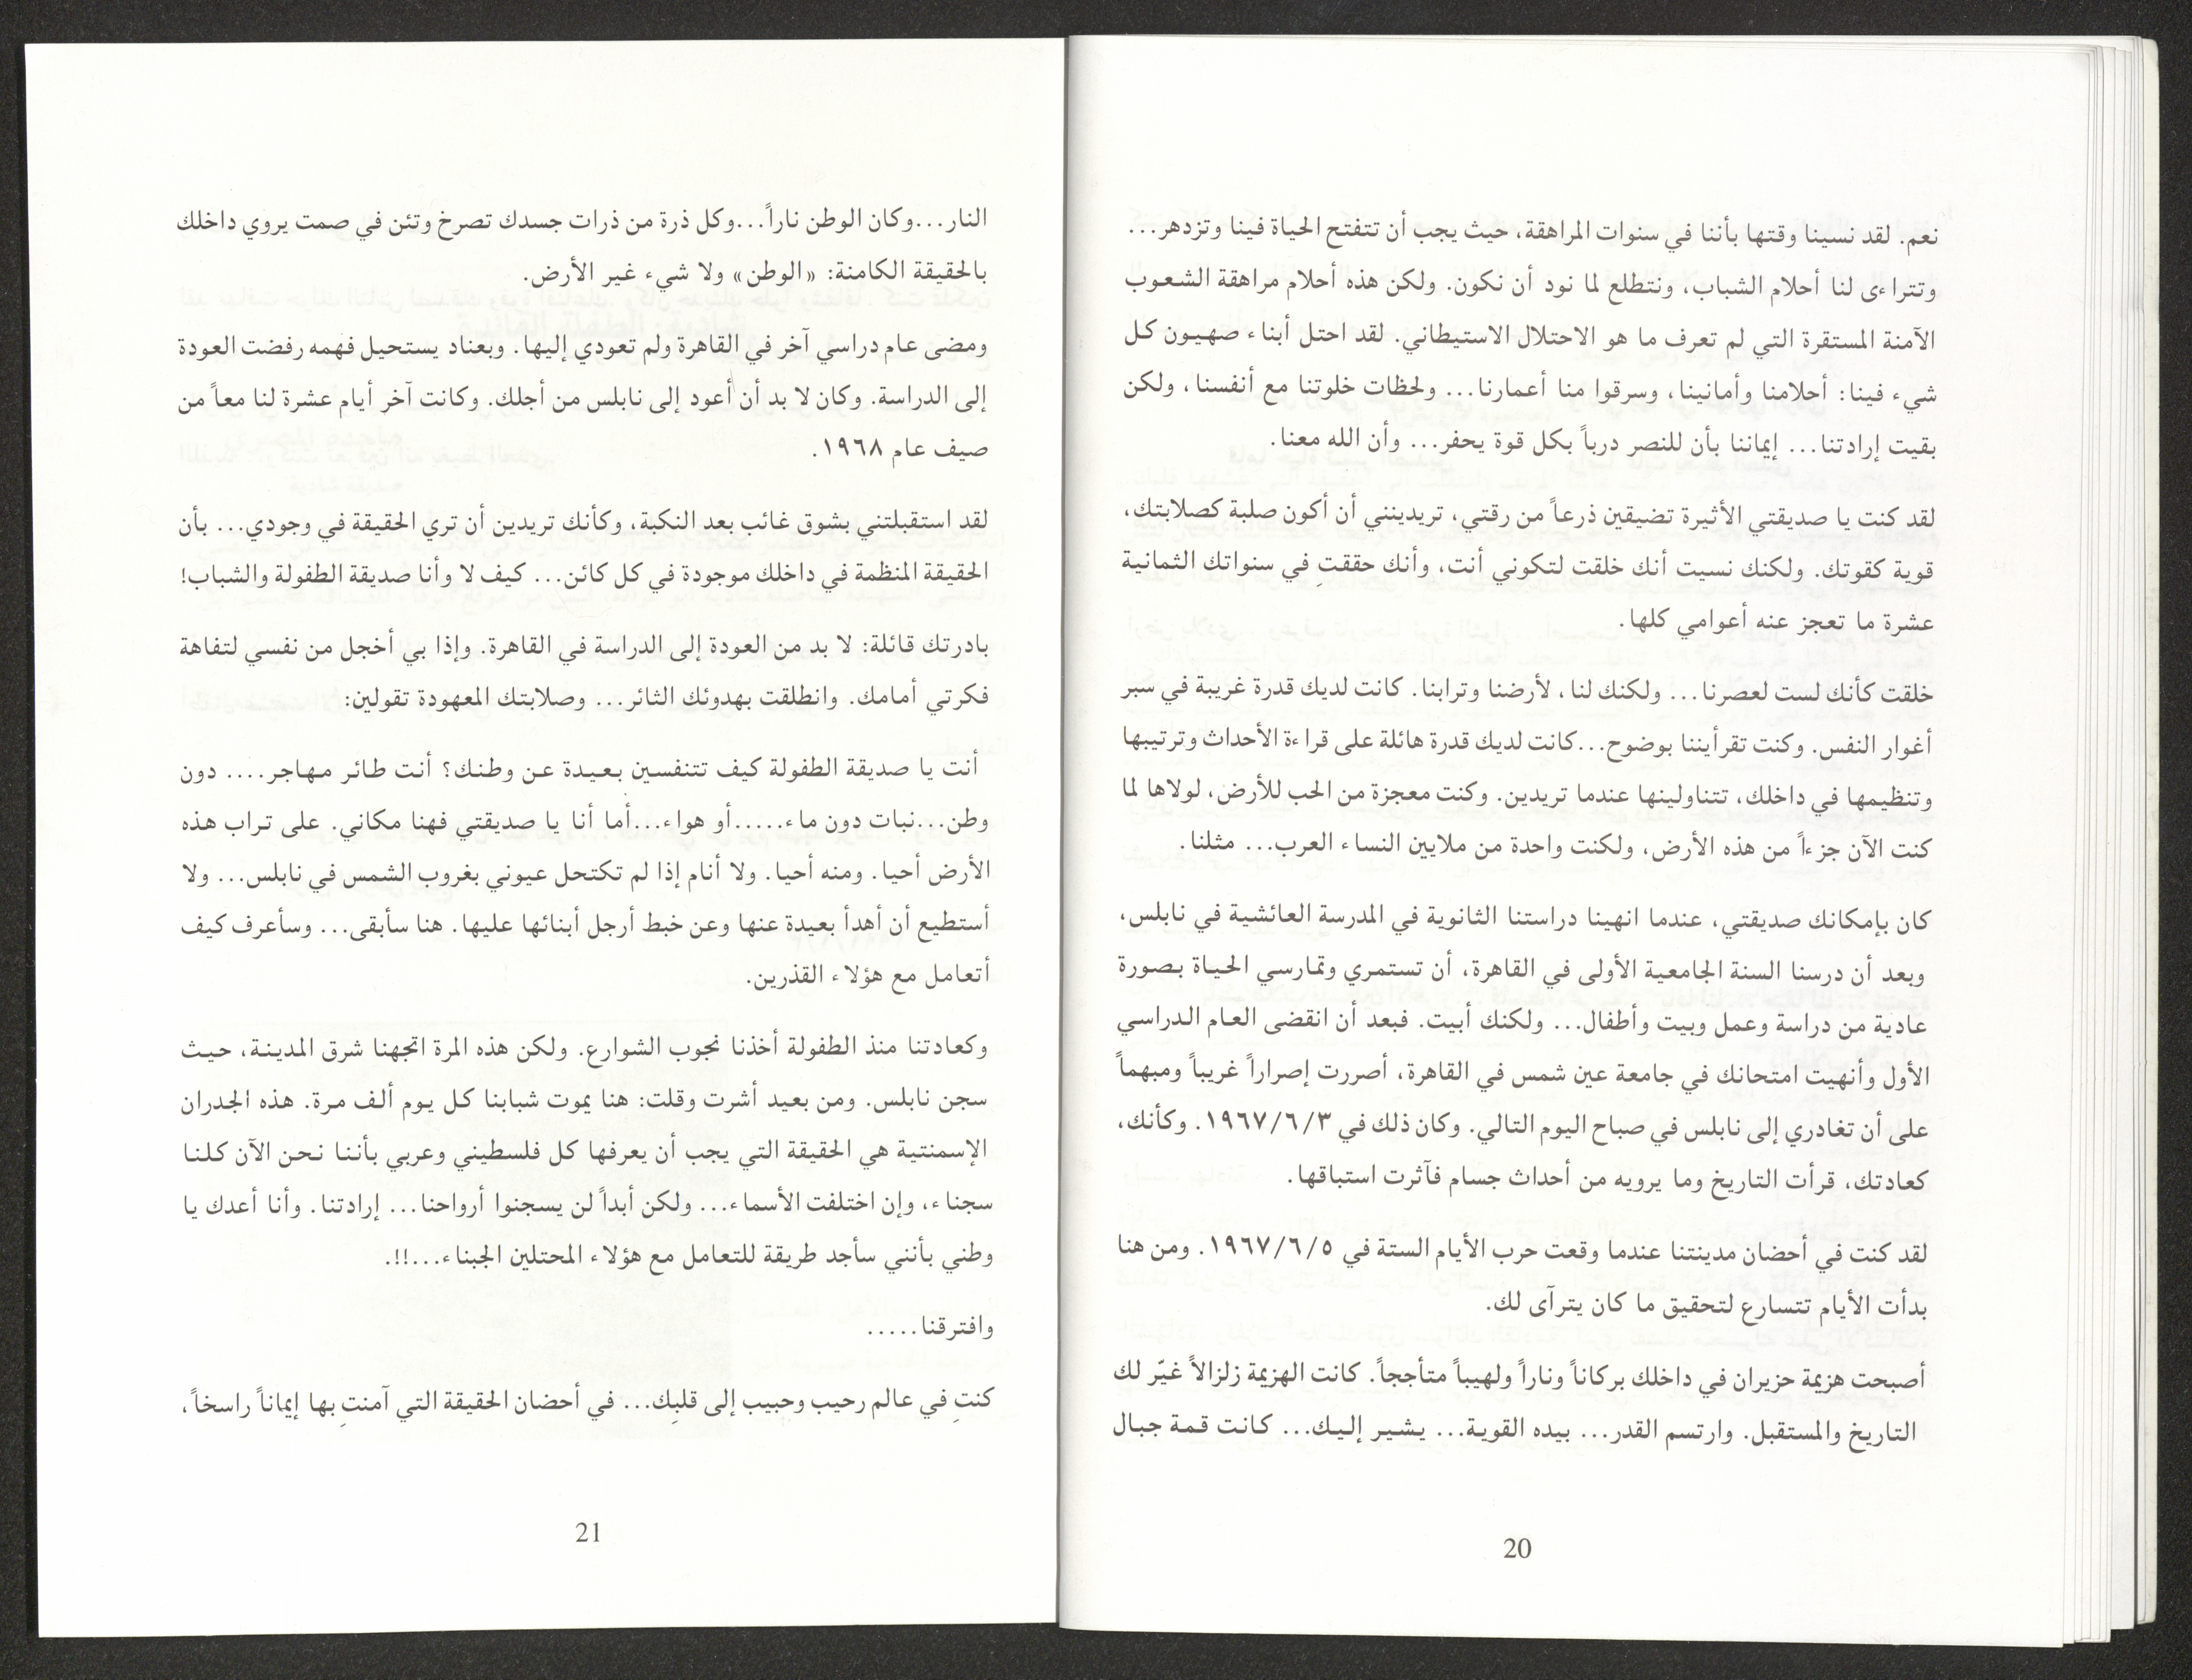 نعم. لقد نسينا وقتها بأننا في سنوات المراهقة، حيث يجب أن تتفتح الحياة فينا وتزدهر...
وتتراءى لنا أحلام الشباب، ونتطلع لما نود أن نكون. ولكن هذه أحلام مراهقة الشعوب
الآمنة المستقرة التي لم تعرف ما هو الاحتلال الاستيطاني. لقد احتل أبناء صهيون كل
شيء فينا: أحلامنا وأمانينا، وسرقوا منا أعمارنا... ولحظات خلوتنا مع أنفسنا، ولكن
بقيت إرادتنا... إيماننا بأن للنصر درباً بكل قوة يحفر... وأن الله معنا.
لقد كنت يا صديقتي الأثيرة تضيقين ذرعاً من رقتي، تريدينني أن أكون صلبة كصلابتك،
قوية كقوتك. ولكنك نسيت أنك خلقت لتكوني أنت، وأنك حققتِ في سنواتك الثمانية
عشرة ما تعجز عنه أعوامي كلها.
خلقت كأنك لست لعصرنا... ولكنك لنا، لأرضنا وترابنا. كانت لديك قدرة غريبة في سبر
أغوار النفس. وكنت تقرأيننا بوضوح...كانت لديك قدرة هائلة على قراءة الأحداث وترتيبها
وتنظيمها في داخلك، تتناولينها عندما تريدين. وكنت معجزة من الحب للأرض، لولاها لما
كنت الآن جزءاً من هذه الأرض، ولكنت واحدة من ملايين النساء العرب... مثلنا.
كان بإمكانك صديقتي، عندما انهينا دراستنا الثانوية في المدرسة العائشية في نابلس،
وبعد أن درسنا السنة الجامعية الأولى في القاهرة، أن تستمري وتمارسي الحياة بصورة
عادية من دراسة وعمل وبيت وأطفال... ولكنك أبيت. فبعد أن انقضى العام الدراسي
الأول وأنهيت امتحانك في جامعة عين شمس في القاهرة، أصررت إصراراً غريباً ومبهماً
على أن تغادري إلى نابلس في صباح اليوم التالي. وكان ذلك في ١٩٦٧/٦/٣. وكأنك،
كعادتك، قرأت التاريخ وما يرويه من أحداث جسام فآثرت استباقها.
لقد كنت في أحضان مدينتنا عندما وقعت حرب الأيام الستة في ١٩٦٧/٦/٥. ومن هنا
بدأت الأيام تتسارع لتحقيق ما كان يترآى لك.
أصبحت هزيمة حزيران في داخلك بركاناً وناراً ولهيباً متأججاً. كانت الهزيمة زلزالاً غيّر لك
التاريخ والمستقبل. وارتسم القدر... بيده القوية... يشير إليك... كانت قمة جبال
20
النار...وكان الوطن ناراً...وكل ذرة من ذرات جسدك تصرخ وتئن في صمت يروي داخلك
بالحقيقة الكامنة: «الوطن» ولا شيء غير الأرض.
ومضى عام دراسي آخر في القاهرة ولم تعودي إليها. وبعناد يستحيل فهمه رفضت العودة
إلى الدراسة. وكان لا بد أن أعود إلى نابلس من أجلك. وكانت آخر أيام عشرة لنا معاً من
صيف عام ١٩٦٨.
لقد استقبلتني بشوق غائب بعد النكبة، وكأنك تريدين أن تري الحقيقة في وجودي... بأن
الحقيقة المنظمة في داخلك موجودة في كل كائن... كيف لا وأنا صديقة الطفولة والشباب!
بادرتك قائلة: لا بد من العودة إلى الدراسة في القاهرة. وإذا بي أخجل من نفسي لتفاهة
فكرتي أمامك. وانطلقت بهدوئك الثائر... وصلابتك المعهودة تقولين:
أنت يا صديقة الطفولة كيف تتنفسين بعيدة عن وطنك؟ أنت طائر مهاجر.... دون
وطن...نبات دون ماء.....أو هواء...أما أنا يا صديقتي فهنا مكاني. على تراب هذه
الأرض أحيا. ومنه أحيا. ولا أنام إذا لم تكتحل عيوني بغروب الشمس في نابلس... ولا
أستطيع أن أهدأ بعيدة عنها وعن خبط أرجل أبنائها عليها. هنا سأبقى... وسأعرف كيف
أتعامل مع هؤلاء القذرين.
وكعادتنا منذ الطفولة أخذنا نجوب الشوارع. ولكن هذه المرة اتجهنا شرق المدينة، حيث
سجن نابلس. ومن بعيد أشرت وقلت: هنا يموت شبابنا كل يوم ألف مرة. هذه الجدران
الإسمنتية هي الحقيقة التي يجب أن يعرفها كل فلسطيني وعربي بأننا نحن الآن كلنا
سجناء، وإن اختلفت الأسماء... ولكن أبداً لن يسجنوا أرواحنا... إرادتنا. وأنا أعدك يا
وطني بأنني سأجد طريقة للتعامل مع هؤلاء المحتلين الجبناء...!!.
وافترقنا.....
كنتِ في عالم رحيب وحبيب إلى قلبِك... في أحضان الحقيقة التي آمنتِ بها إيماناً راسخاً،
21